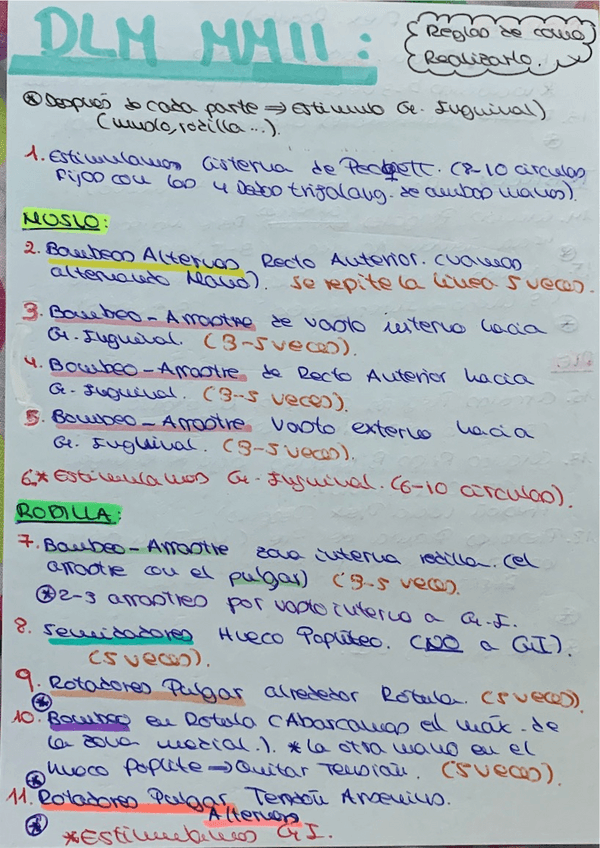 DLM MMII:
Reglas de como
Realizarlo.
* Después de cada parte ⇒ estimulo G. Inguinal)
(muslo, rodilla...).
1. Estimulamos Cisterna de Pecquett. (8-10 circulos
Fijos con los 4 Dedos trifalang. de ambas manos).
MUSLO:
2. Bombeos Alternos Recto Anterior. (vamos
alternando Mano). Se repite la línea 5 veces.
3. Bombeo-Arrastre de vasto interno hacia
G. Inguinal. (3-5 veces).
4. Bombeo-Arrastre de Recto Anterior hacia
G. Inguinal. (3-5 veces)).
5. Bombeo-Arrastre Vasto externo hacia
G. Inguinal. (3-5 veces).
6.* Estimulamos G. Inguinal. (6-10 circulos).
RODILLA:
7. Bombeo-Arrastre zona interna rodilla. (el
arrastre con el pulgar) (3-5 veces).
* 2-3 arrastres por vasto interno a G.I.
8. Semicadores Hueco Popliteo. (NO a GI).
(5 veces).
9. Rotadores Pulgar alrededor Rotula. (5 veces).
*
10. Bombeo en Rotula (Abarcamos el máx. de
la zona medial.). * la otra mano en el
hueco poplite → Quitar Tensión. (5 veces).
*
11. Rotadores Pulgar Tendón Anserinus.
Alternos
* *Estimulamos GI.